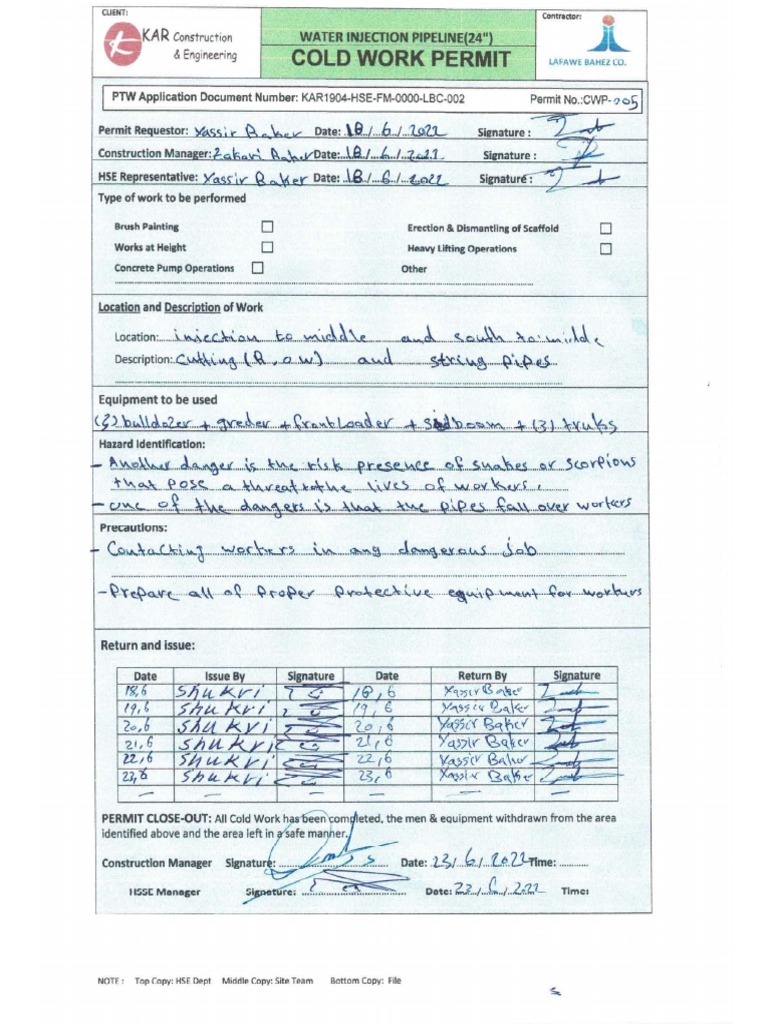 CLIENT:
KAR Construction
& Engineering
WATER INJECTION PIPELINE(24")
COLD WORK PERMIT
Contractor:
LAFAWE BAHEZ CO.
PTW Application Document Number: KAR1904-HSE-FM-0000-LBC-002 Permit No.:CWP-005
Permit Requestor: Yassir Baker Date: 18/6/2022 Signature :
Construction Manager: Zakari Baker Date: 18/6/2022 Signature :
HSE Representative: Yassir Baker Date: 18/6/2022 Signature :
Type of work to be performed
Brush Painting Erection & Dismantling of Scaffold
Works at Height Heavy Lifting Operations
Concrete Pump Operations Other
Location and Description of Work
Location: injection to middle and south to middle
Description: Cutting (R.o.w) and string pipes
Equipment to be used
(3) bulldozer + greder + frontloader + sidboom + (3) truks
Hazard Identification:
- Another danger is the risk presence of snakes or scorpions
that pose a threat to the lives of workers.
- one of the dangers is that the pipes fall over workers
Precautions:
- Contacting workers in any dangerous job
- Prepare all of proper protective equipment for workers
Return and issue:
Date Issue By Signature Date Return By Signature
18,6 Shukri 18,6 Yassir Baker
19,6 Shukri 19,6 Yassir Baker
20,6 Shukri 20,6 Yassir Baker
21,6 Shukri 21,6 Yassir Baker
22,6 Shukri 22,6 Yassir Baker
23,6 Shukri 23,6 Yassir Baker
PERMIT CLOSE-OUT: All Cold Work has been completed, the men & equipment withdrawn from the area
identified above and the area left in a safe manner.
Construction Manager Signature: Date: 23/6/2022 Time:
HSSE Manager Signature: Date: 23/6/2022 Time:
NOTE : Top Copy: HSE Dept Middle Copy: Site Team Bottom Copy: File